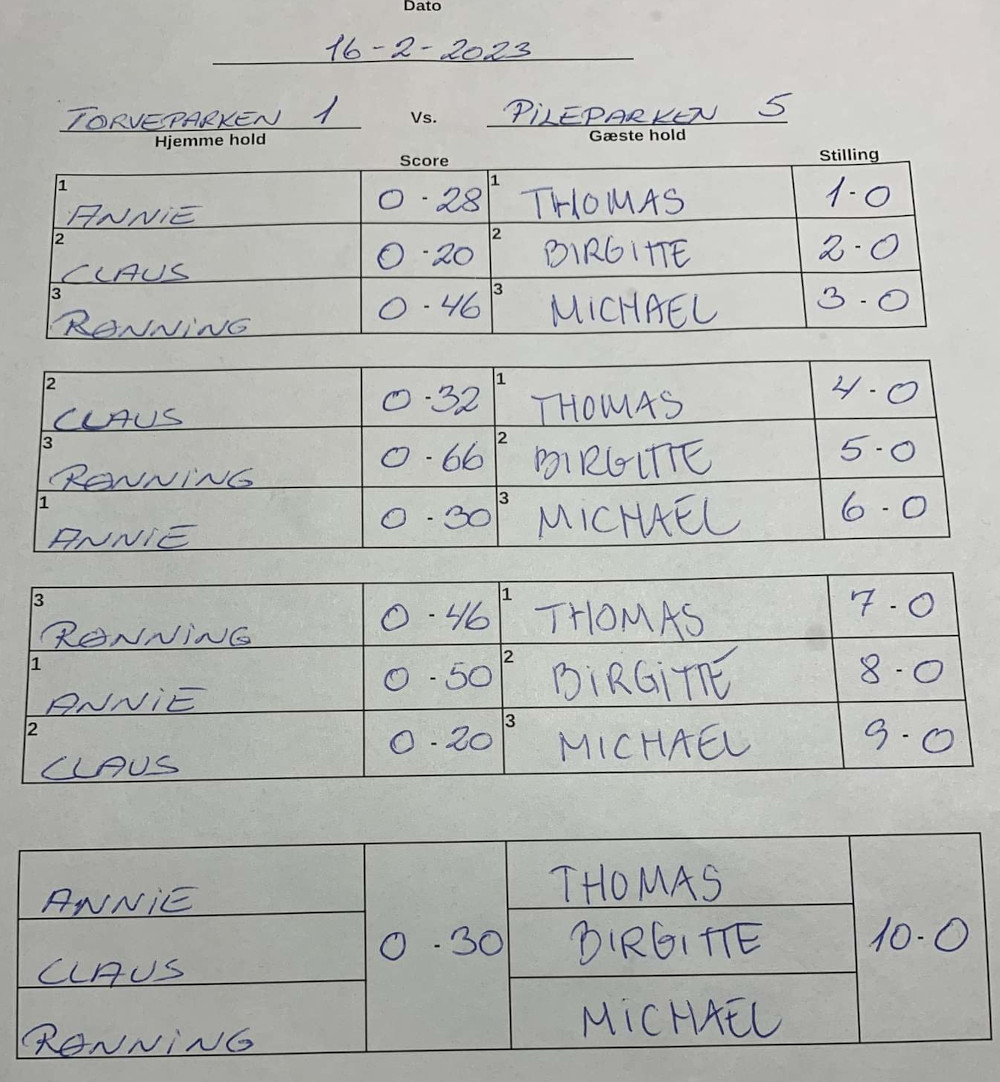 Dato
16-2-2023
TORVEPARKEN 1 Vs. PILEPARKEN 5
Hjemme hold Gæste hold
Score Stilling
1 ANNIE 0-28 1 THOMAS 1-0
2 CLAUS 0-20 2 BIRGITTE 2-0
3 RØNNING 0-46 3 MICHAEL 3-0
2 CLAUS 0-32 1 THOMAS 4-0
3 RØNNING 0-66 2 BIRGITTE 5-0
1 ANNIE 0-30 3 MICHAEL 6-0
3 RØNNING 0-46 1 THOMAS 7-0
1 ANNIE 0-50 2 BIRGITTE 8-0
2 CLAUS 0-20 3 MICHAEL 9-0
ANNIE THOMAS
CLAUS 0-30 BIRGITTE 10-0
RØNNING MICHAEL